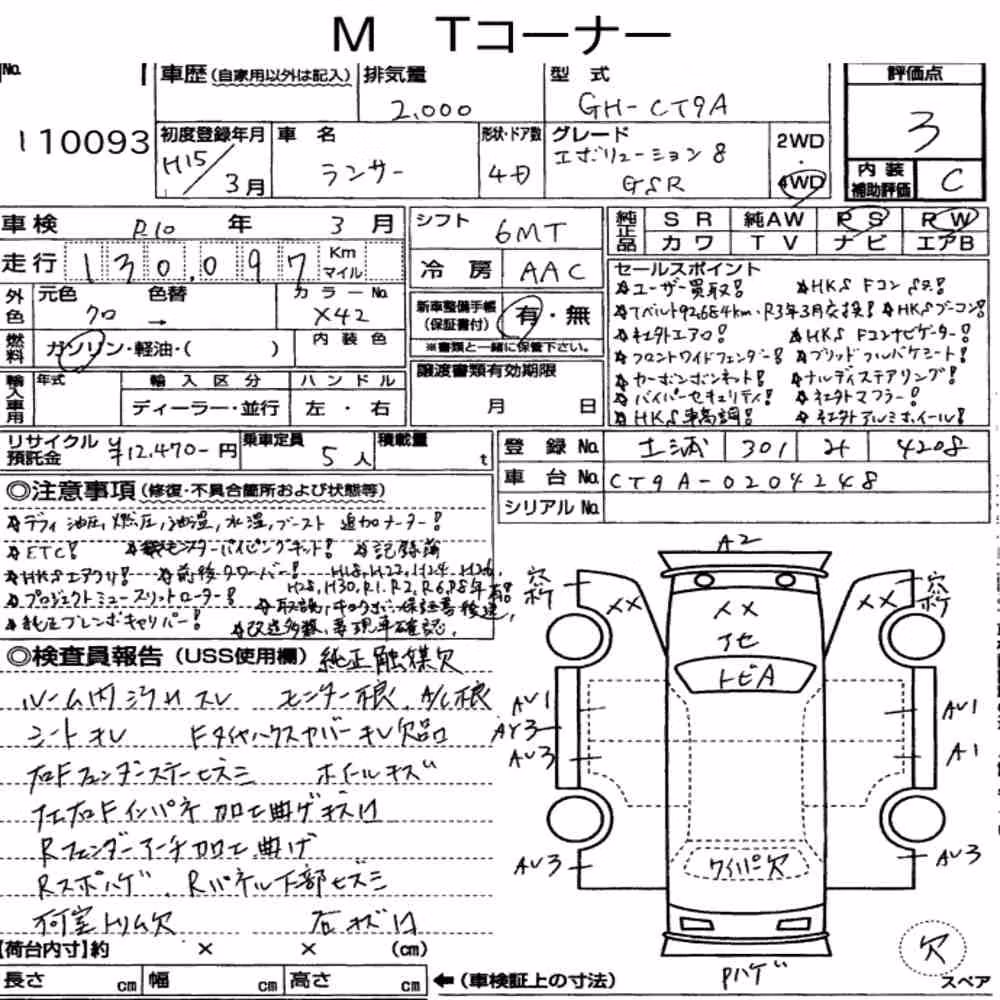 M Tコーナー
No. 110093
車歴 (自家用以外は記入)
排気量 2,000
型式 GH-CT9A
評価点 3
初度登録年月 H15/3月
車名 ランサー
形状・ドア数 4D
グレード エボリューション8 GSR
2WD・4WD
内装補助評価 C
車検 R10年 3月
走行 130,097 Km マイル
シフト 6MT
冷房 AAC
純正品 SR 純AW PS PW
カワ TV ナビ エアB
外色 元色 クロ → 色替
カラーNo. X42
燃料 ガソリン・軽油・( )
内装色
新車整備手帳(保証書付) 有・無
※書類と一緒に保管下さい。
輸入車用 年式 輸入区分 ハンドル
ディーラー・並行 左・右
譲渡書類有効期限 月 日
セールスポイント
☆ユーザー買取! ☆HKS Fコン
☆Tベルト92,684km、R3年3月交換! ☆HKSブーコン!
☆社外エアロ! ☆HKS Fコンナビゲーター!
☆フロントワイドフェンダー! ☆ブリッドフルバケシート!
☆カーボンボンネット! ☆ナルディステアリング!
☆バイパーセキュリティ! ☆社外マフラー!
☆HKS車高調! ☆社外アルミホイール!
リサイクル預託金 ¥12,470-円
乗車定員 5人
積載量 t
登録No. 土浦 301 4208
車台No. CT9A-0204248
シリアルNo.
◎注意事項(修復・不具合箇所および状態等)
☆デフィ 油圧,燃圧,油温,水温,ブースト 追加メーター!
☆ETC! パイピングキット! ☆記録簿
☆HKSエアクリ! ☆前後タワーバー! H18,H22,H24,H26,
H28,H30,R1,R2,R6,R8年有!
☆プロジェクトミュースリットローター! ☆取説、キロクボ、保証書後送、
☆純正ブレンボキャリパー! ☆改造多数、要現車確認。
◎検査員報告(USS使用欄) 純正触媒欠
ルーム内ヨゴレスレ センター根、A/C根
シートキレ FタイヤハウスカバーキレI欠品
右Fフェンダーステーヒズミ ホイールキズ
左右Fインパネ加工曲ゲキズ
Rフェンダーアーチ加工曲げ
Rスポハゲ、Rパネル下部ヒズミ
荷室トリム欠 石キズ
A2
穴 ボケ
穴 ボケ
×× ×× ××
トビA
AU1
AY3
AU3
AU1
A1
ワイパー欠
AU3
AU3
Pハゲ
欠
スペア
【荷台内寸】約 × × (cm)
長さ cm 幅 cm 高さ cm ←(車検証上の寸法)